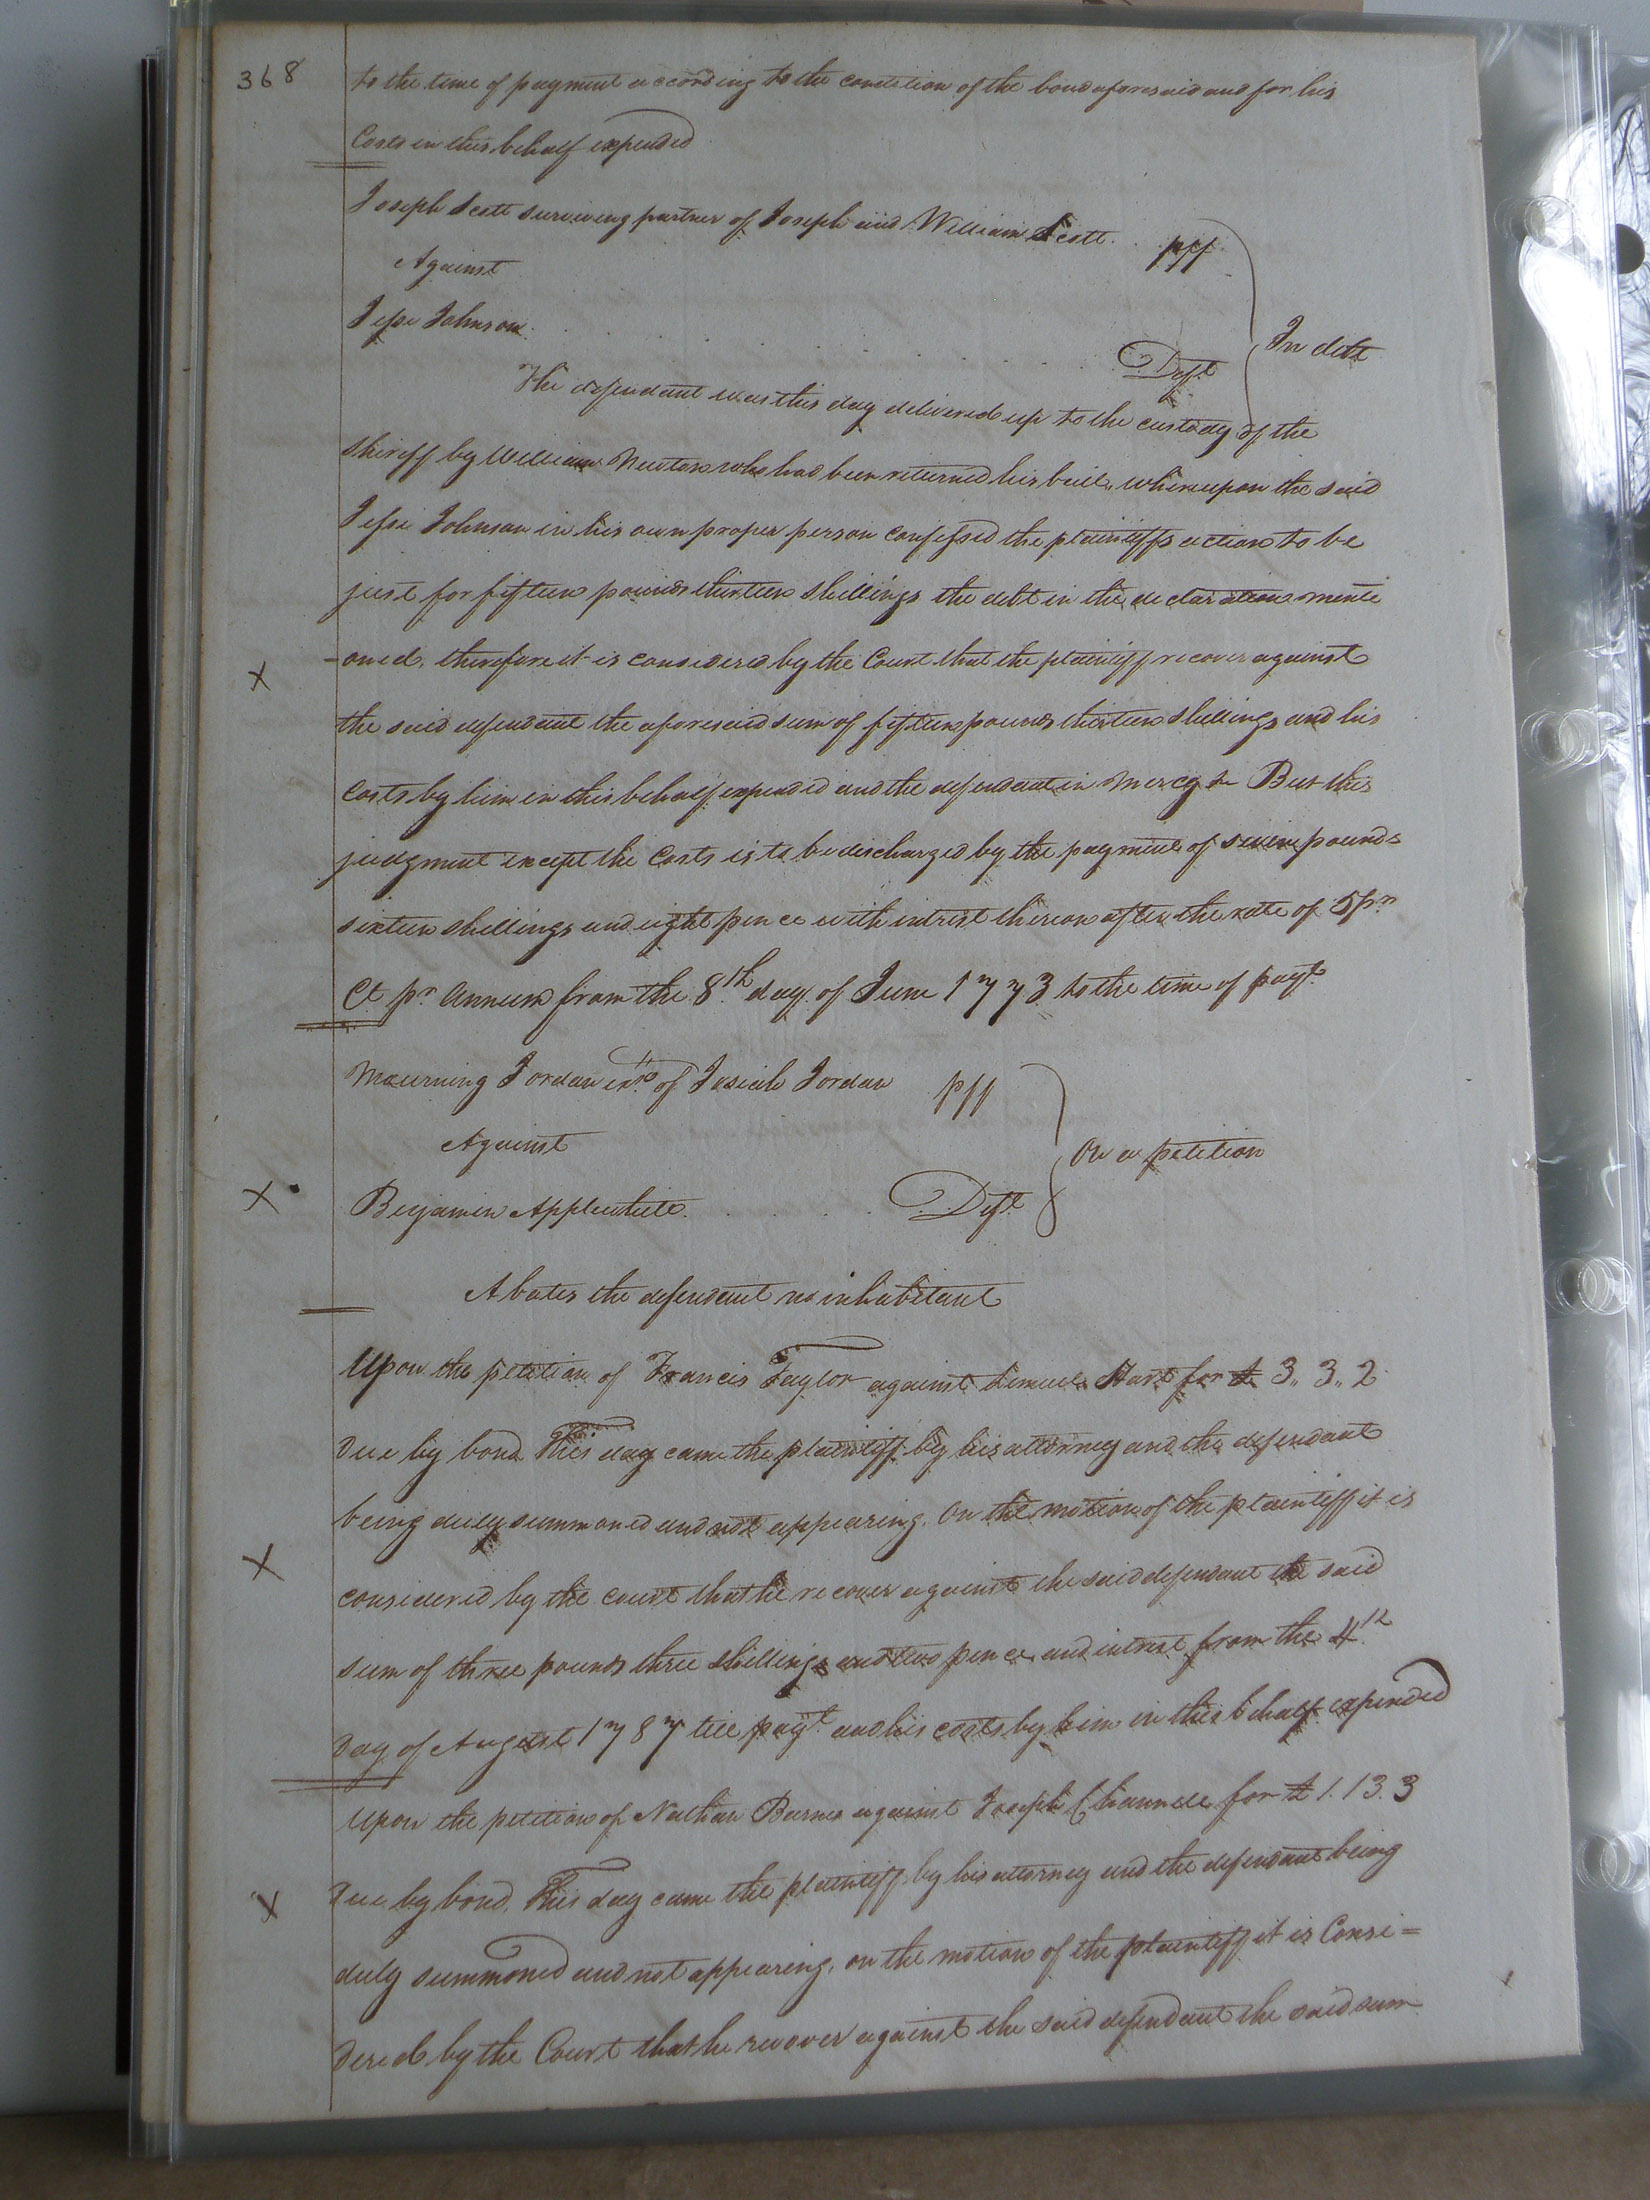 368
to the time of payment according to the condition of the bond aforesaid and for his
Costs in this behalf expended
Joseph Scott surviving partner of Joseph and William Scott . . plf
Against
Jesse Johnson . . . . . . . . Deft
In debt
The defendant was this day delivered up to the custody of the
Sheriff by William Newton who had been returned his bail, whereupon the said
Jesse Johnson in his own proper person confessed the plaintiffs action to be
just for fifteen pounds thirteen shillings the debt in the declaration menti
-oned, therefore it is considered by the Court that the plaintiff recover against
the said defendant the aforesaid sum of fifteen pounds thirteen shillings and his
Costs by him in this behalf expended and the defendant in Mercy &c But this
judgment except the Costs is to be discharged by the payment of seven pounds
sixteen shillings and eight pence with intrest thereon after the rate of 5 pr
Ct pr Annum from the 8th day of June 1773 to the time of payt
Mourning Jordan exrx of Josiah Jordan plf
Against
Benjamin Applewhite . . . . . Deft
On a petition
Abates the defendant no inhabitant
Upon the petition of Francis Taylor against Lemuel Hart for £ 3,, 3,, 2
Due by bond This day came the plaintiff by his attorney and the defendant
being duly summoned and not appearing. On the motion of the plaintiff it is
considered by the court that he recover against the said defendant the said
sum of three pounds three shillings and two pence and intrest from the 4th
Day of August 1787 till payt and his costs by him in this behalf expended
Upon the petition of Nathan Barnes against Joseph Channell for £ 1. 13. 3
Due by bond, This day came the plaintiff by his attorney and the defendant being
duly summoned and not appearing, on the motion of the plaintiff it is Consi=
dered by the Court that he recover against the said defendant the said sum